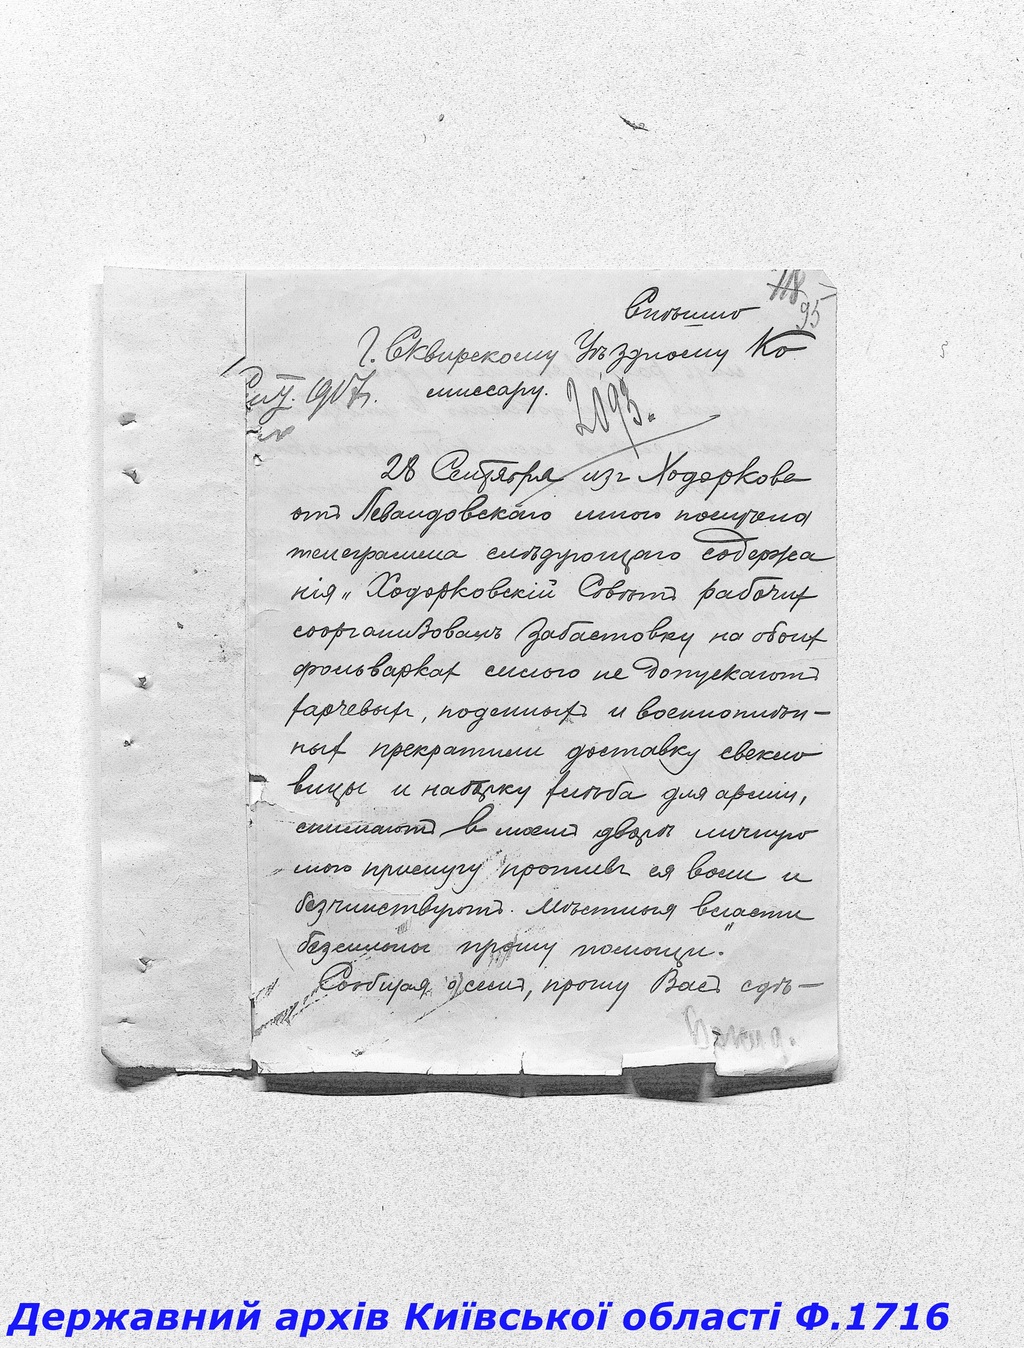 118
95
Спѣшно
Г. Сквирскому Уѣздному Ко
миссару.
1917.
2093.
28 Сентября изъ Ходоркова
отъ Левандовскаго мною получена
телеграмма слѣдующаго содержа
нія „Ходорковскій Совѣтъ рабочих
сорганизовалъ забастовку на обоих
фольварках силою не допускаютъ
харчевых, поденных и военноплѣн-
ных прекратили доставку свекло
вицы и  хлѣба для арміи,
снимаютъ в моем дворѣ личную
мою прислугу противъ ея воли и
безчинствуютъ. Мѣстныя власти
безсильны прошу помощи."
Сообщая о семъ, прошу Васъ сдѣ-
Державний архів Київської області Ф.1716